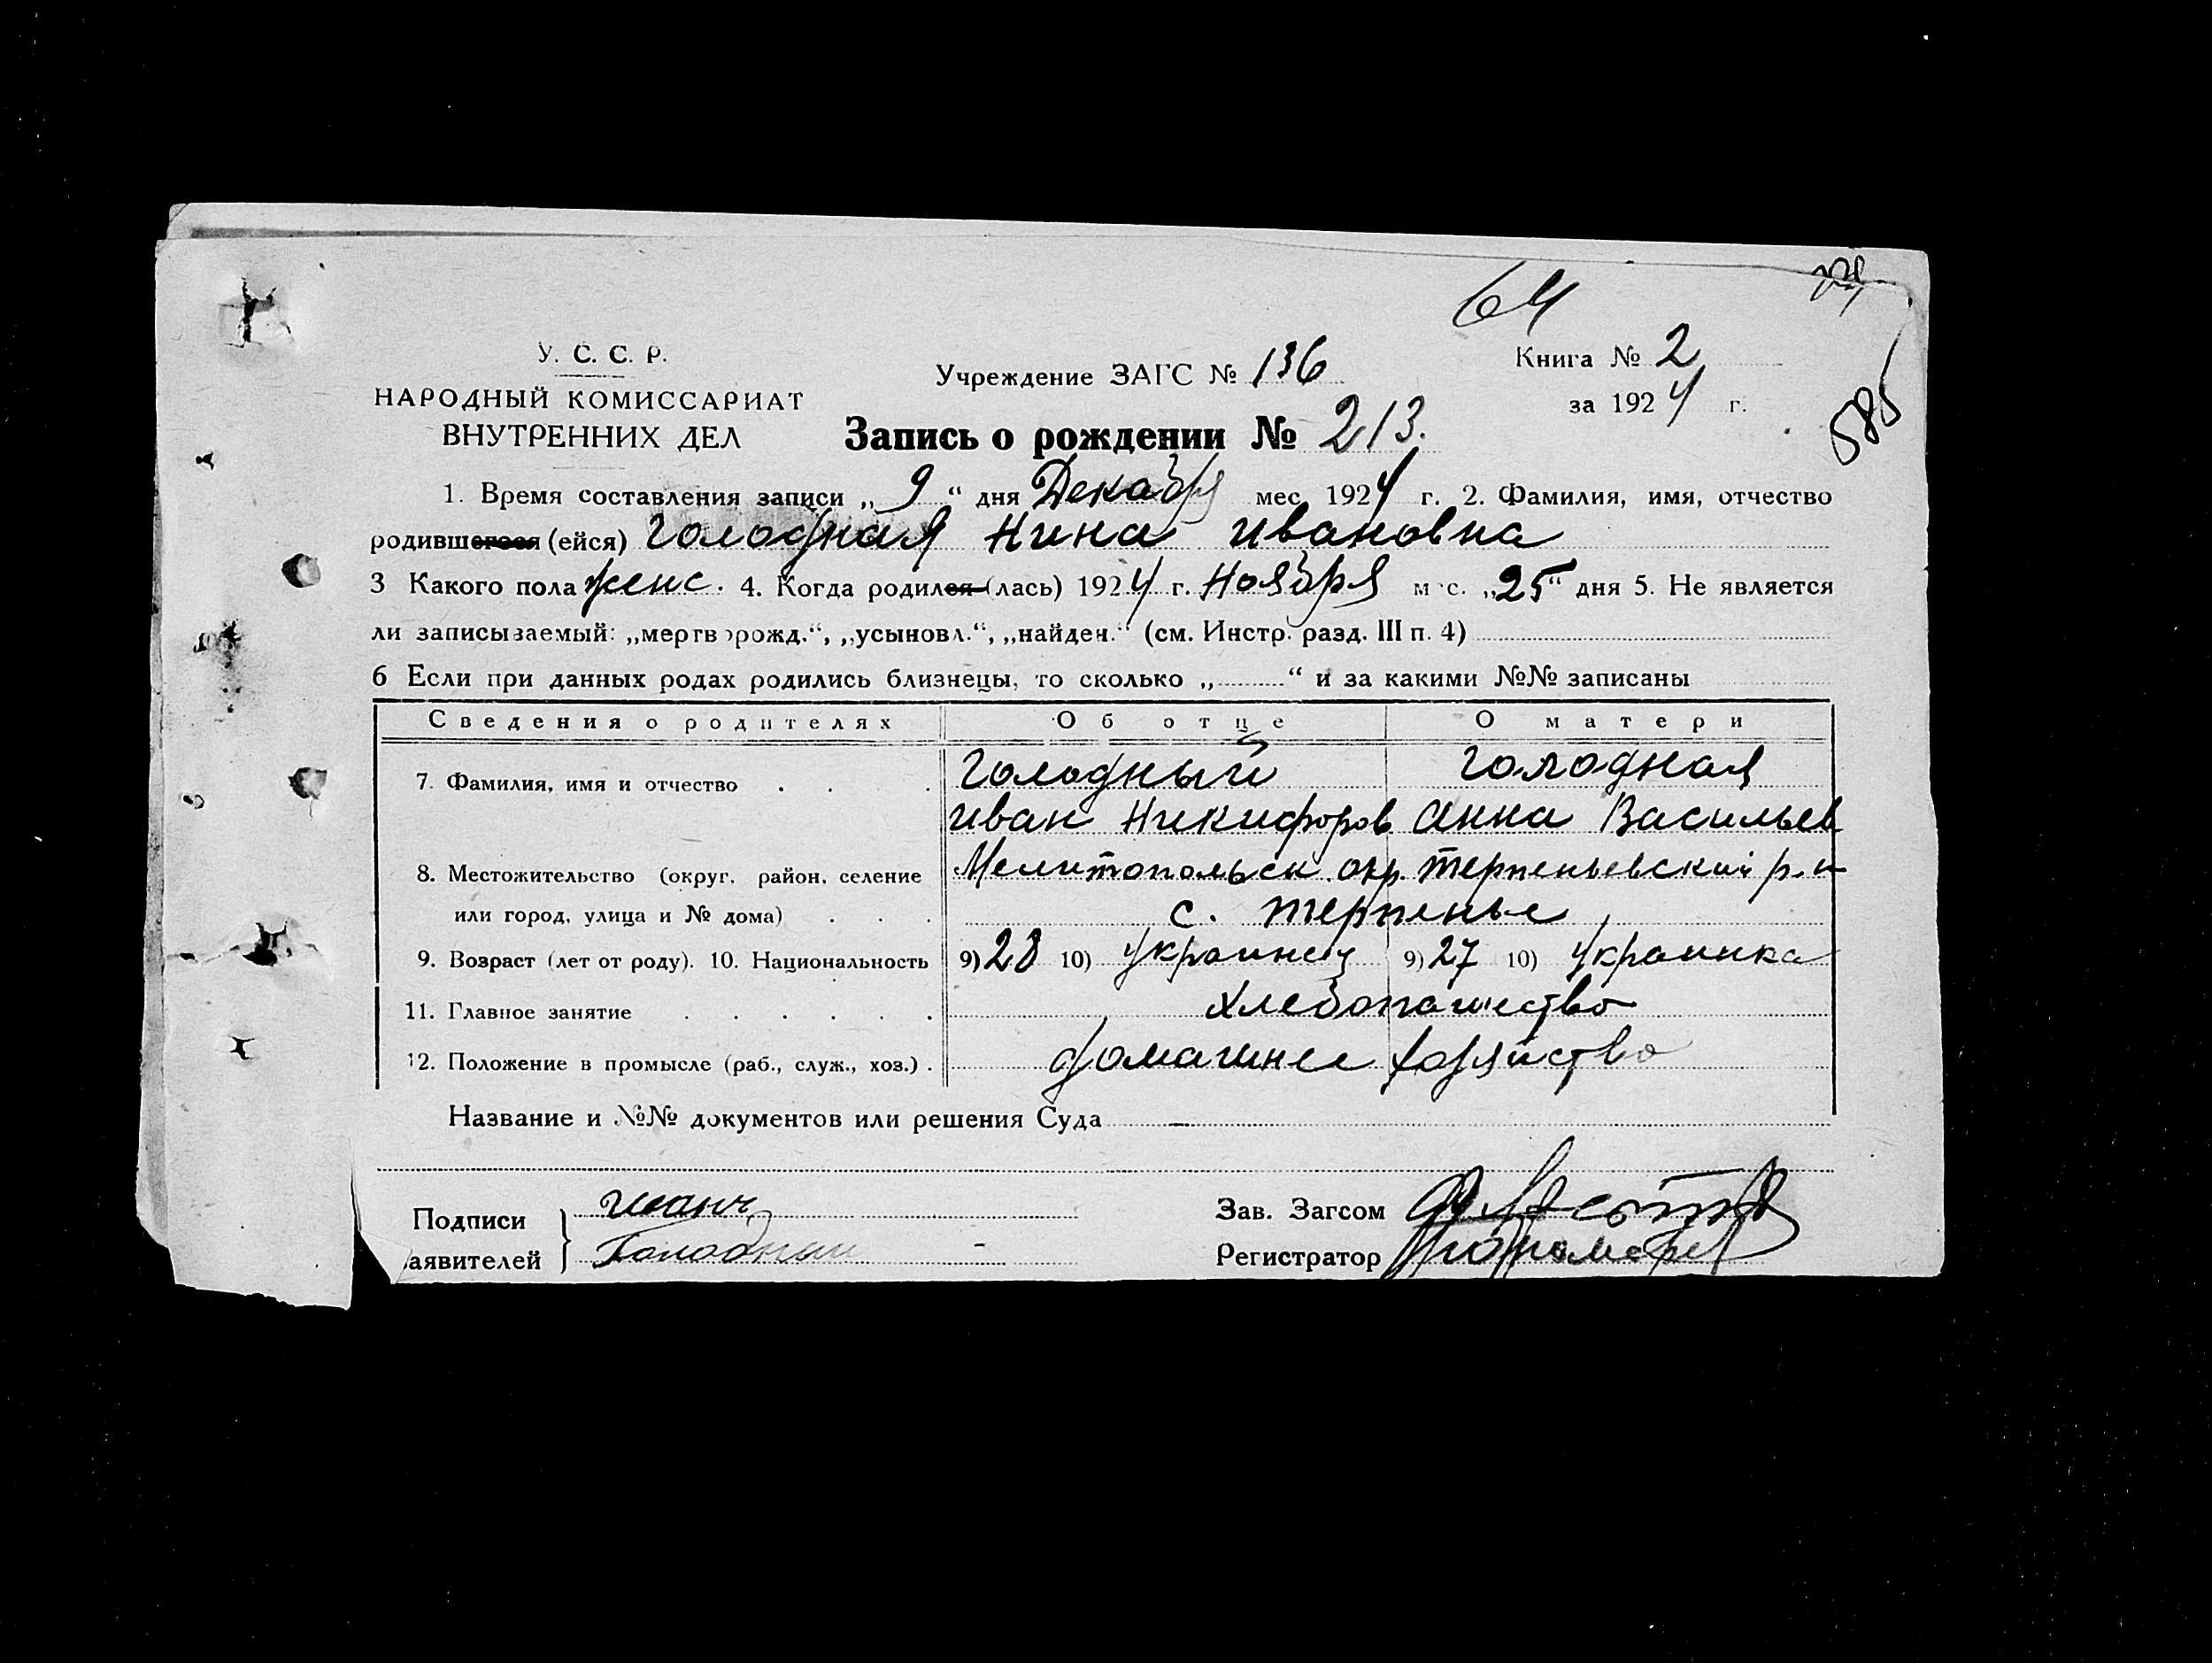 64
У. С. С. Р.
НАРОДНЫЙ КОМИССАРИАТ
ВНУТРЕННИХ ДЕЛ
Учреждение ЗАГС № 136
Книга № 2
за 1924 г.
585
Запись о рождении № 213.
1. Время составления записи „ 9 “ дня Декабря мес. 1924 г. 2. Фамилия, имя, отчество
родившегося (ейся) Голодная Нина Ивановна
3 Какого пола женс. 4. Когда родился (лась) 1924 г. Ноября мес. „25“ дня 5. Не является
ли записываемый: „мертворожд.“, „усыновл.“, „найден.“ (см. Инстр. разд. III п. 4)
6 Если при данных родах родились близнецы, то сколько „ “ и за какими №№ записаны
Сведения о родителях Об отце О матери
7. Фамилия, имя и отчество Голодный Голодная
Иван Никифоров Анна Васильев
8. Местожительство (округ, район, селение Мелитопольск. окр. Терпеньевский р-н
или город, улица и № дома) с. Терпенье
9. Возраст (лет от роду). 10. Национальность 9) 28 10) Украинец 9) 27 10) Украинка
11. Главное занятие Хлебопашество
12. Положение в промысле (раб., служ., хоз.) домашнее хозяйство
Название и №№ документов или решения Суда —
Подписи Зав. Загсом
аявителей Голодная Регистратор